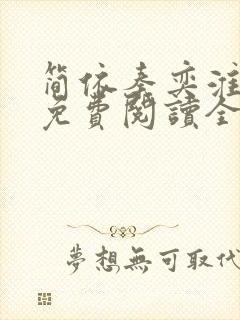 简依秦奕淮
免費閱讀全
夢想無可取代